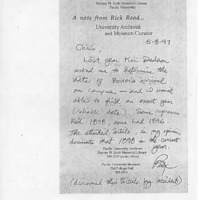 Harvey W. Scott Memorial Library
Pacific University
A note from Rick Read...
University Archivist
and Museum Curator
5-8-97
Chris,
Last year Ken
asked me to determine the
date of Boxer's arrival
on campus — and I wasn't
able to find an exact year
(
Some sources
said 1898, some said 1896.
The attached article, in my opinion,
that 1898 is the correct
year.
Pacific University Archives
Harvey W. Scott Memorial Library
Pacific University Museum
Old College Hall
(discovered this article by accident)